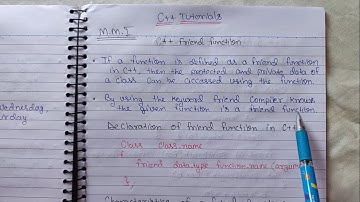 C++ Tutorials
M.M.I
C++ Friend function
• If a function is defined as a friend function
in C++, then the protected and private data of
a class can be accessed using the function.
• By using the keyword friend compiler knows
the given function is a friend function.
Declaration of friend function in C++
Class class_name
{
friend data_type function_name (argum
};